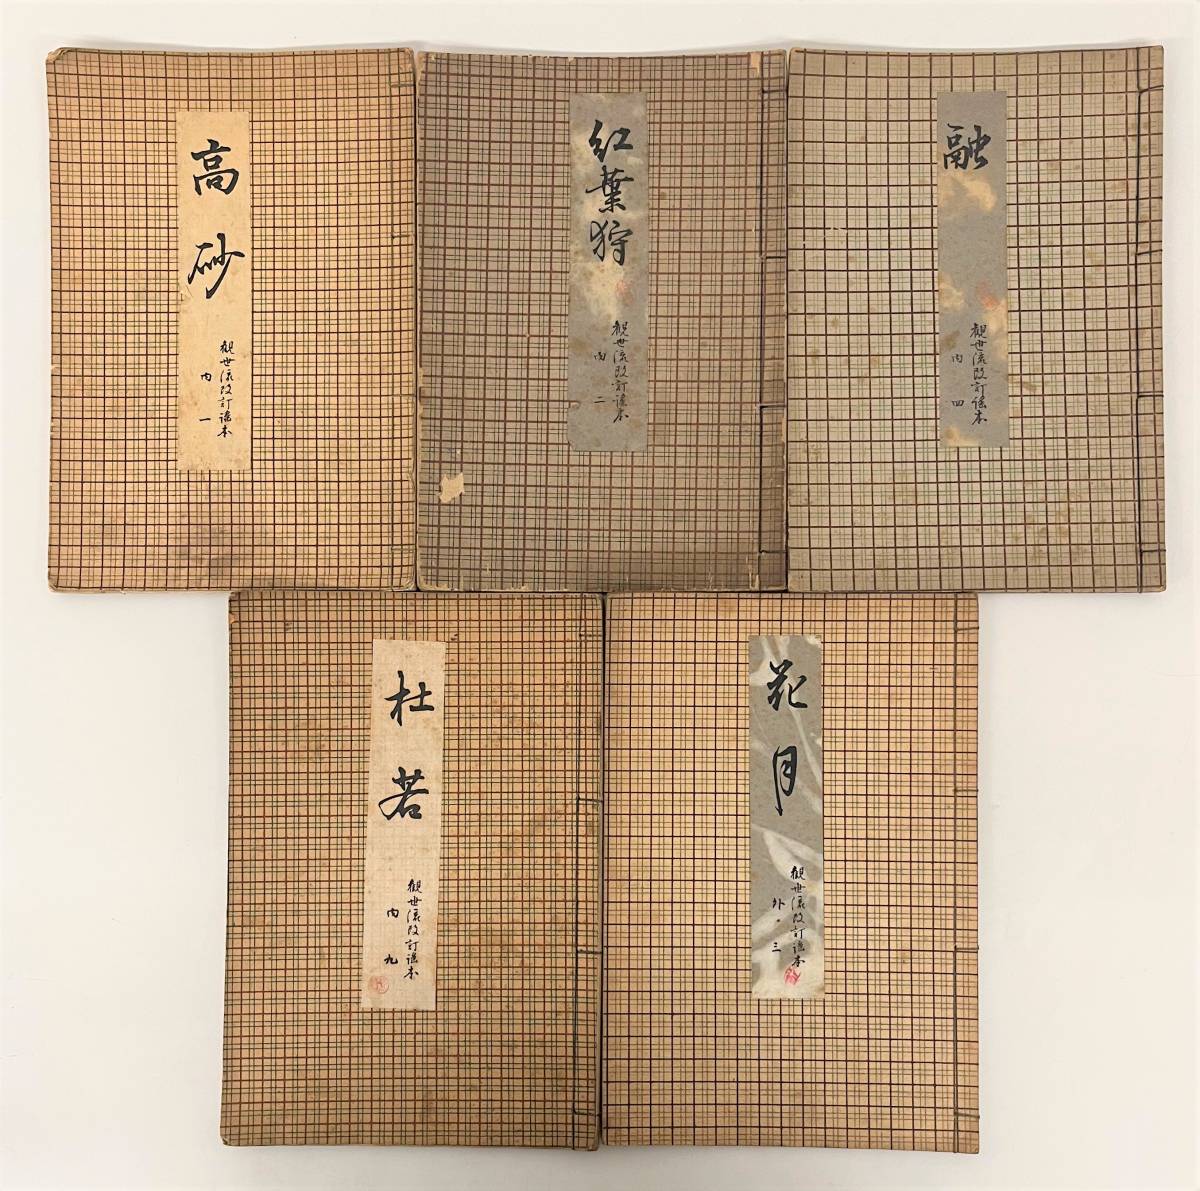 高砂
観世流改訂謡本
内 一
紅葉狩
観世流改訂謡本
内 二
融
観世流改訂謡本
内 四
杜若
観世流改訂謡本
内 九
花月
観世流改訂謡本
外 三